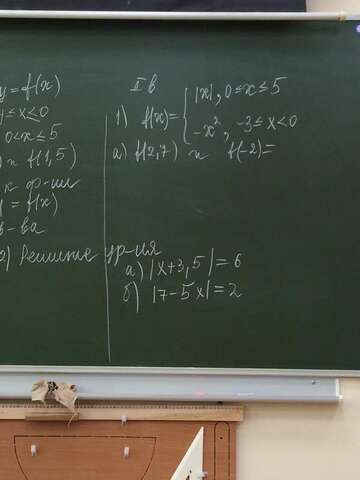 y = f(x)
≤ x < 0
0 < x ≤ 5
) и f(1,5)
к ф-ии
= f(x)
в-ва
2) Решите ур-ия
II в
1) f(x) = { |x|, 0 ≤ x ≤ 5
-x², -3 ≤ x < 0
а) f(2,7) и f(-2) =
а) |x+3,5| = 6
б) |7-5x| = 2